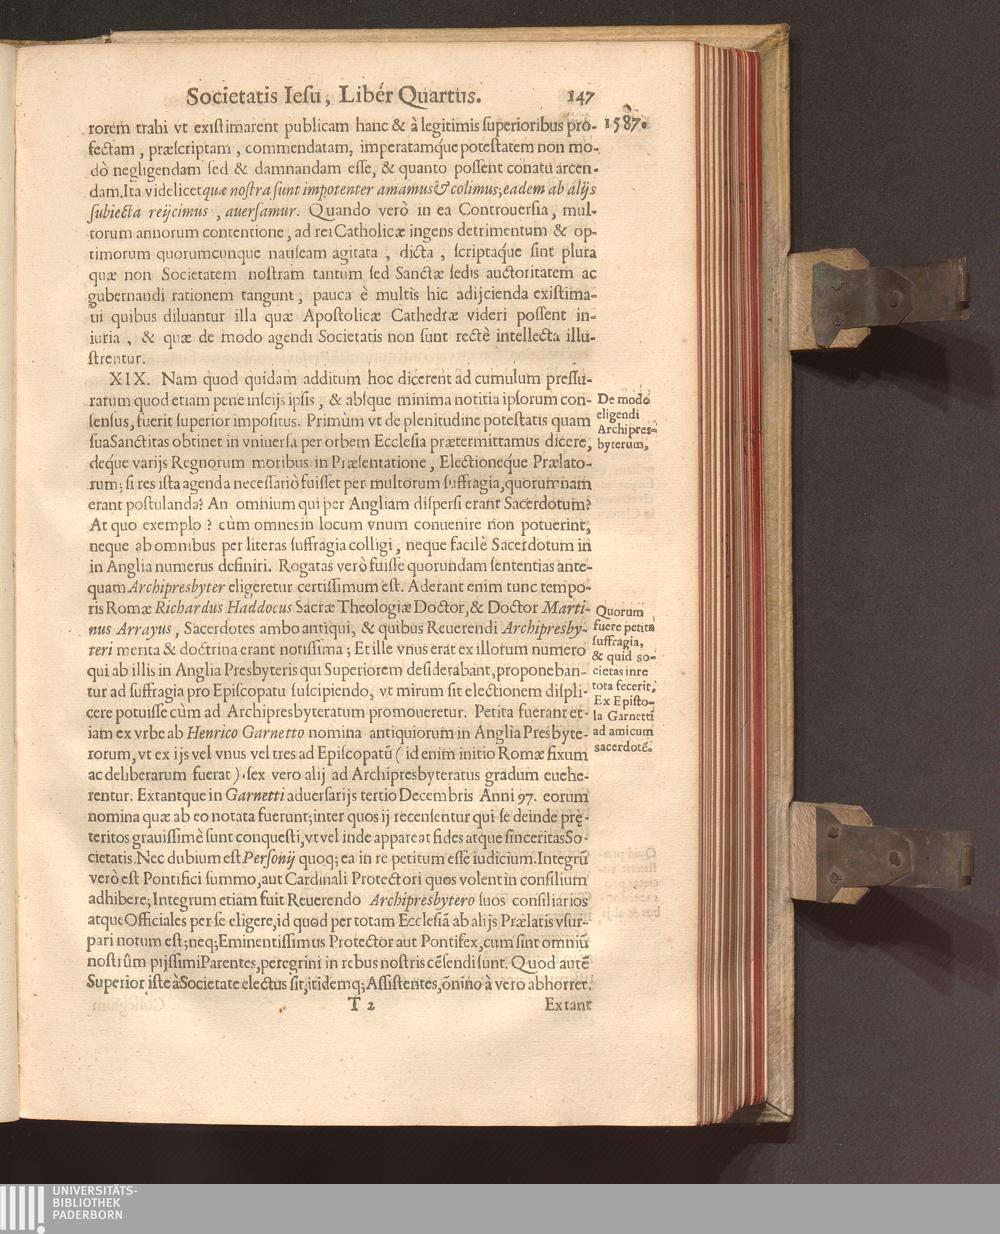 Societatis Iesu, Libér Quartus. 147
1587.
rorem trahi vt existimarent publicam hanc & à legitimis superioribus pro-
fectam, præscriptam, commendatam, imperatamq́ue potestatem non mo-
dò negligendam sed & damnandam esse, & quanto possent conatu arcen-
dam. Ita videlicet quæ nostra sunt impotenter amamus & colimus; eadem ab alijs
subiecta reijcimus, auersamur. Quando verò in ea Controuersia, mul-
torum annorum contentione, ad rei Catholicæ ingens detrimentum & op-
timorum quorumcunque nauseam agitata, dicta, scriptaq́ue sint plura
quæ non Societatem nostram tantum sed Sanctæ sedis auctoritatem ac
gubernandi rationem tangunt, pauca è multis hic adijcienda existima-
ui quibus diluantur illa quæ Apostolicæ Cathedræ videri possent in-
iuria, & quæ de modo agendi Societatis non sunt rectè intellecta illu-
strentur.
XIX. Nam quod quidam additum hoc dicerent ad cumulum pressu-
rarum quod etiam pene inscijs ipsis, & absque minima notitia ipsorum con-
sensus, fuerit superior impositus. Primùm vt de plenitudine potestatis quam
sua Sanctitas obtinet in vniuersa per orbem Ecclesia prætermittamus dicere,
deq́ue varijs Regnorum moribus in Præsentatione, Electioneq́ue Prælato-
rum; si res ista agenda necessariò fuisset per multorum suffragia, quorumnam
erant postulanda? An omnium qui per Angliam dispersi erant Sacerdotum?
At quo exemplo? cùm omnes in locum vnum conuenire non potuerint,
neque ab omnibus per literas suffragia colligi, neque facilè Sacerdotum in
in Anglia numerus definiri. Rogatas verò fuisse quorundam sententias ante-
quam Archipresbyter eligeretur certissimum est. Aderant enim tunc tempo-
ris Romæ Richardus Haddocus Sacræ Theologiæ Doctor, & Doctor Marti-
nus Arrayus, Sacerdotes ambo antiqui, & quibus Reuerendi Archipresby-
teri merita & doctrina erant notissima; Et ille vnus erat ex illorum numero
qui ab illis in Anglia Presbyteris qui Superiorem desiderabant, proponeban-
tur ad suffragia pro Episcopatu suscipiendo, vt mirum sit electionem displi-
cere potuisse cùm ad Archipresbyteratum promoueretur. Petita fuerant et-
iam ex vrbe ab Henrico Garnetto nomina antiquiorum in Anglia Presbyte-
rorum, vt ex ijs vel vnus vel tres ad Episcopatū (id enim initio Romæ fixum
ac deliberarum fuerat) sex vero alij ad Archipresbyteratus gradum euehe-
rentur. Extantque in Garnetti aduersarijs tertio Decembris Anni 97. eorum
nomina quæ ab eo notata fuerunt; inter quos ij recensentur qui se deinde prę-
teritos grauissimè sunt conquesti, vt vel inde appareat fides atque sinceritas So-
cietatis. Nec dubium est Personij quoq; ea in re petitum esse iudicium. Integrū
verò est Pontifici summo, aut Cardinali Protectori quos volent in consilium
adhibere; Integrum etiam fuit Reuerendo Archipresbytero suos consiliarios
atque Officiales per se eligere, id quod per totam Ecclesiā ab alijs Prælatis vsur-
pari notum est; neq; Eminentissimus Protector aut Pontifex, cum sint omniū
nostrûm pijssimi Parentes, peregrini in rebus nostris cēsendi sunt. Quod autē
Superior iste à Societate electus sit, itidemq; Assistentes, ōnino à vero abhorret.
T 2 Extant
De modo
eligendi
Archipres-
byterum,
Quorum
fuere petita
suffragia,
& quid so-
cietas in re
tota fecerit.
Ex Episto-
la Garnetti
ad amicum
sacerdotē.
UNIVERSITÄTS-
BIBLIOTHEK
PADERBORN